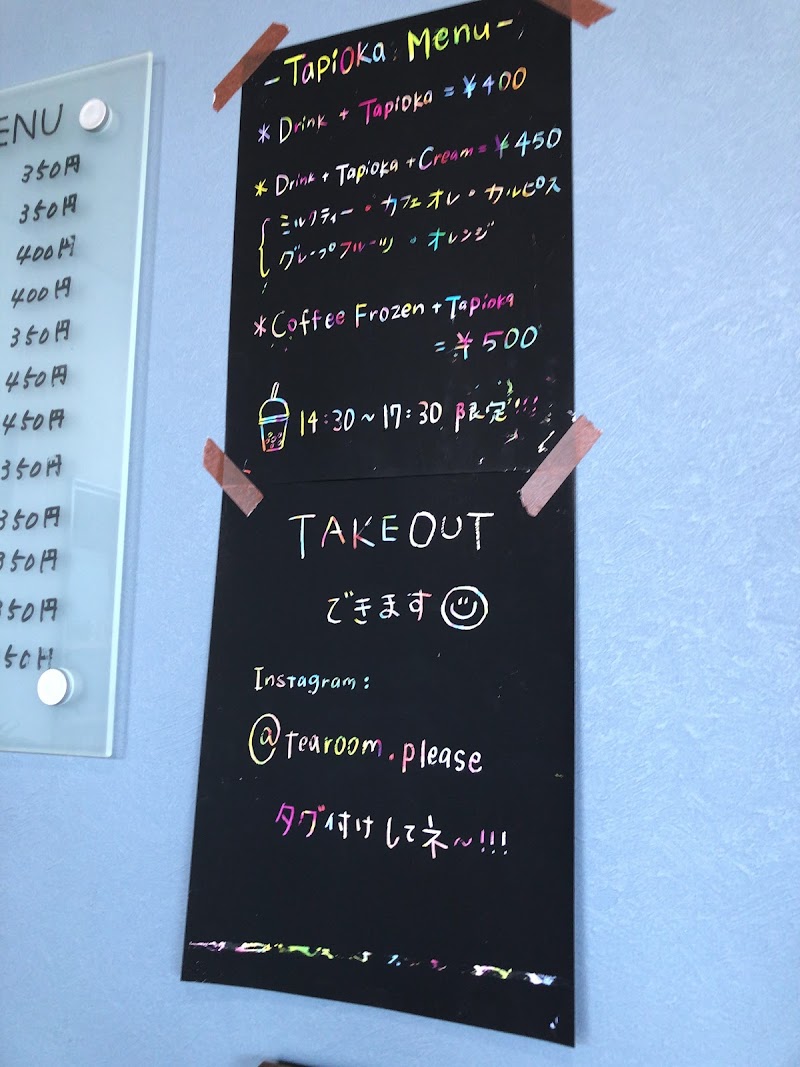 ENU
350円
350円
400円
400円
350円
450円
450円
350円
350円
350円
350円
50円
-Tapioka Menu-
* Drink + Tapioka = ¥400
* Drink + Tapioka + Cream = ¥450
ミルクティー・カフェオレ・カルピス
グレープフルーツ・オレンジ
* Coffee Frozen + Tapioka
= ¥500
14:30~17:30 限定!!!
TAKEOUT
できます
Instagram:
@tearoom.please
タグ付けしてネ~!!!